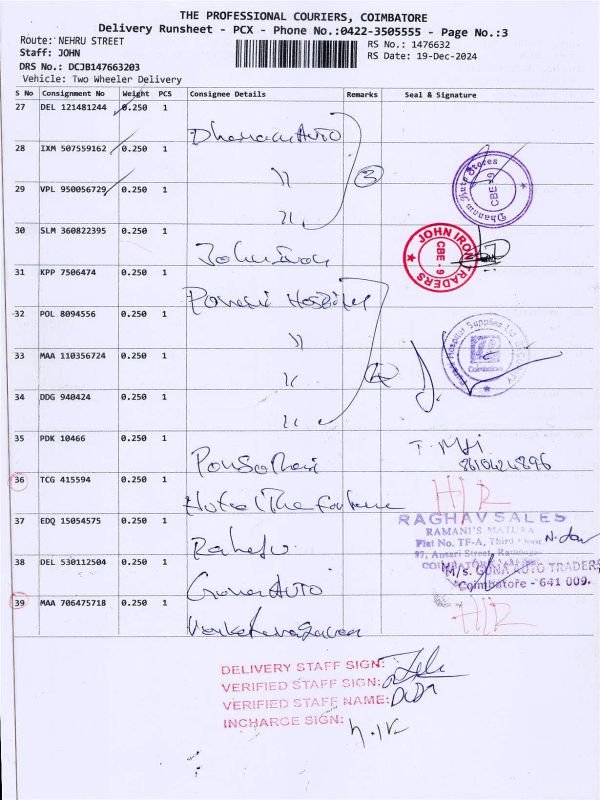 THE PROFESSIONAL COURIERS, COIMBATORE
Delivery Runsheet - PCX - Phone No.:0422-3505555 - Page No.:3
Route: NEHRU STREET
RS No.: 1476632
Staff: JOHN
RS Date: 19-Dec-2024
DRS No.: DCJB147663203
Vehicle: Two Wheeler Delivery
S No Consignment No Weight PCS Consignee Details Remarks Seal & Signature
27 DEL 121481244 0.250 1
Dhanam Auto
28 IXM 507559162 0.250 1
〃 3
29 VPL 950056729 0.250 1
〃
Dhanam Auto Stores CBE - 9
30 SLM 360822395 0.250 1
John Iron
JOHN IRON TRADERS CBE - 9
31 KPP 7506474 0.250 1
Ponmani Hospital
32 POL 8094556 0.250 1
〃
33 MAA 110356724 0.250 1
〃 4
Hospital Supplies Coimbatore
34 DDG 940424 0.250 1
〃
35 PDK 10466 0.250 1
T. Mani
8610424896
36 TCG 415594 0.250 1
Hotel The Fortune H/R
37 EDQ 15054575 0.250 1
RAGHAV SALES
RAMANI'S MATURA
Flat No. TF-A, Third Floor
97, Ansari Street, Ramnagar
38 DEL 530112504 0.250 1
Guna AUTO
M/s. GUNA AUTO TRADERS
Coimbatore - 641 009.
39 MAA 706475718 0.250 1
H/R
DELIVERY STAFF SIGN:
VERIFIED STAFF SIGN:
VERIFIED STAFF NAME:
INCHARGE SIGN: